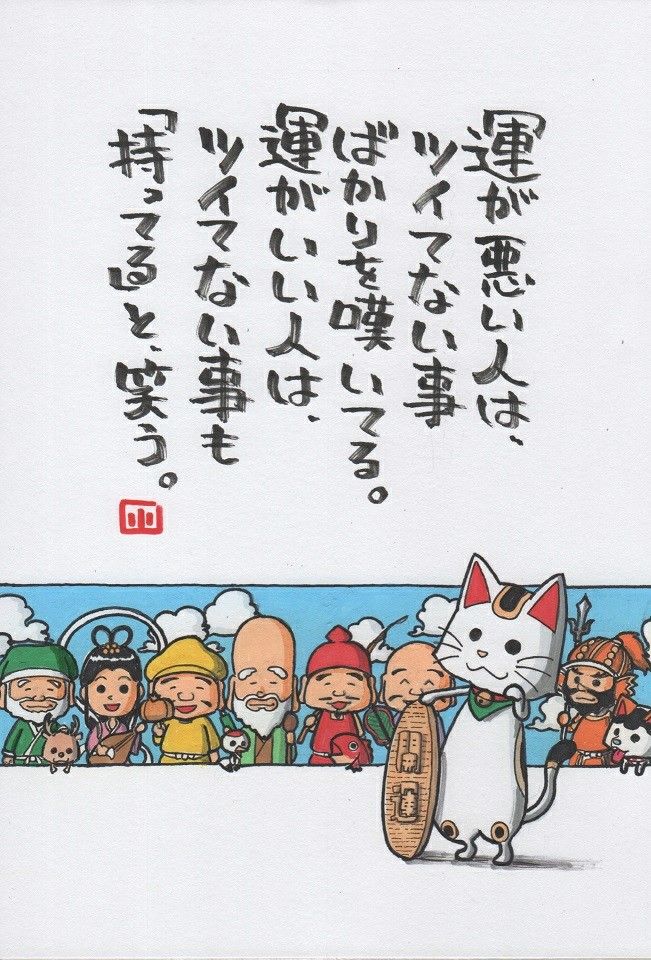 「運が悪い人は、
ツイてない事
ばかりを嘆いてる。
運がいい人は、
ツイてない事も
「持ってる」と、笑う。
山
開運